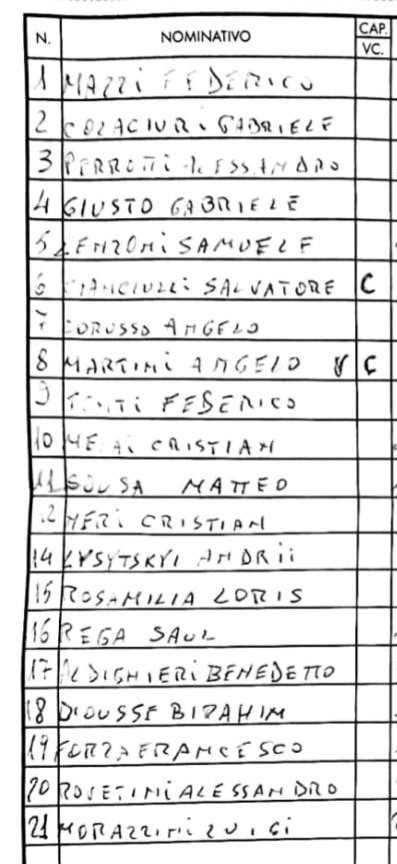 N. NOMINATIVO CAP. VC.
1 MAZZI FEDERICO
2 COLACIURI GABRIELE
3 PERROTTI ALESSANDRO
4 GIUSTO GABRIELE
5 LENZONI SAMUELE
6 CIANCIULLI SALVATORE C
7 LORUSSO ANGELO
8 MARTINI ANGELO V C
9 FEDERICO
10 CRISTIAN
11 SOUSA MATTEO
12 NERI CRISTIAN
14 LYSYTSKYI ANDRII
15 ROSAMILIA LORIS
16 REGA SAUL
17 ALDIGHIERI BENEDETTO
18 DIOUSSE BIRAHIM
19 FORZA FRANCESCO
20 ROSETINI ALESSANDRO
21 MORAZZINI LUIGI